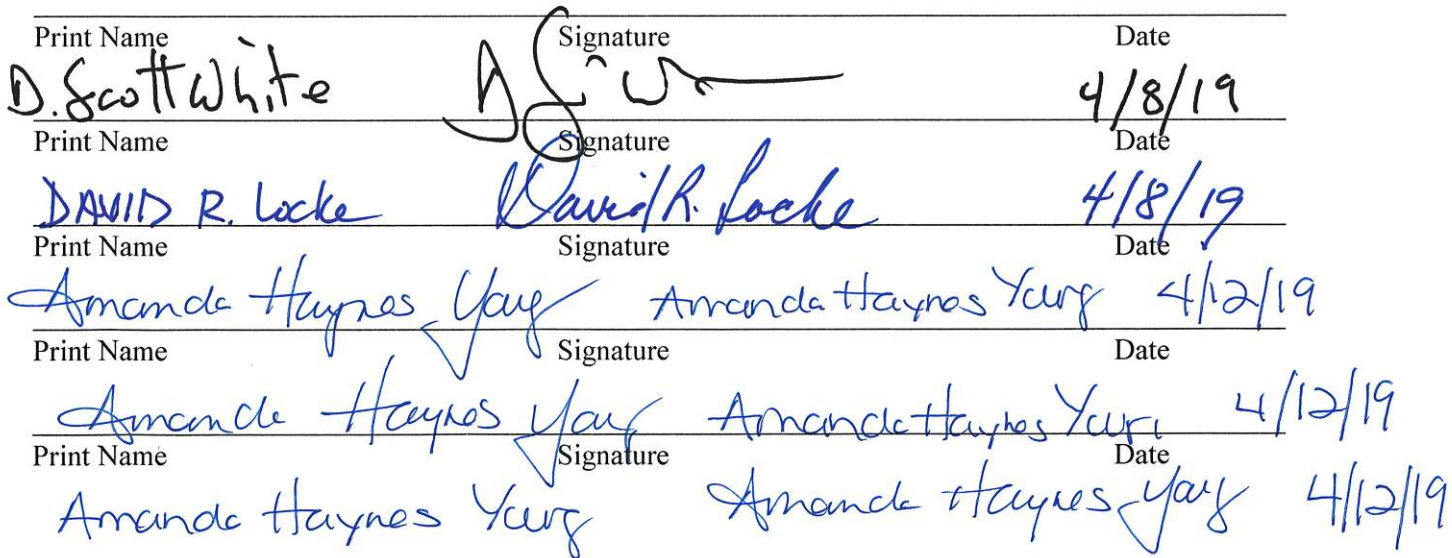 Print Name Signature Date
D. Scott White 4/8/19
Print Name Signature Date
DAVID R. Locke David R. Locke 4/8/19
Print Name Signature Date
Amanda Haynes Young Amanda Haynes Young 4/12/19
Print Name Signature Date
Amanda Haynes Young Amanda Haynes Young 4/12/19
Print Name Signature Date
Amanda Haynes Young Amanda Haynes Young 4/12/19